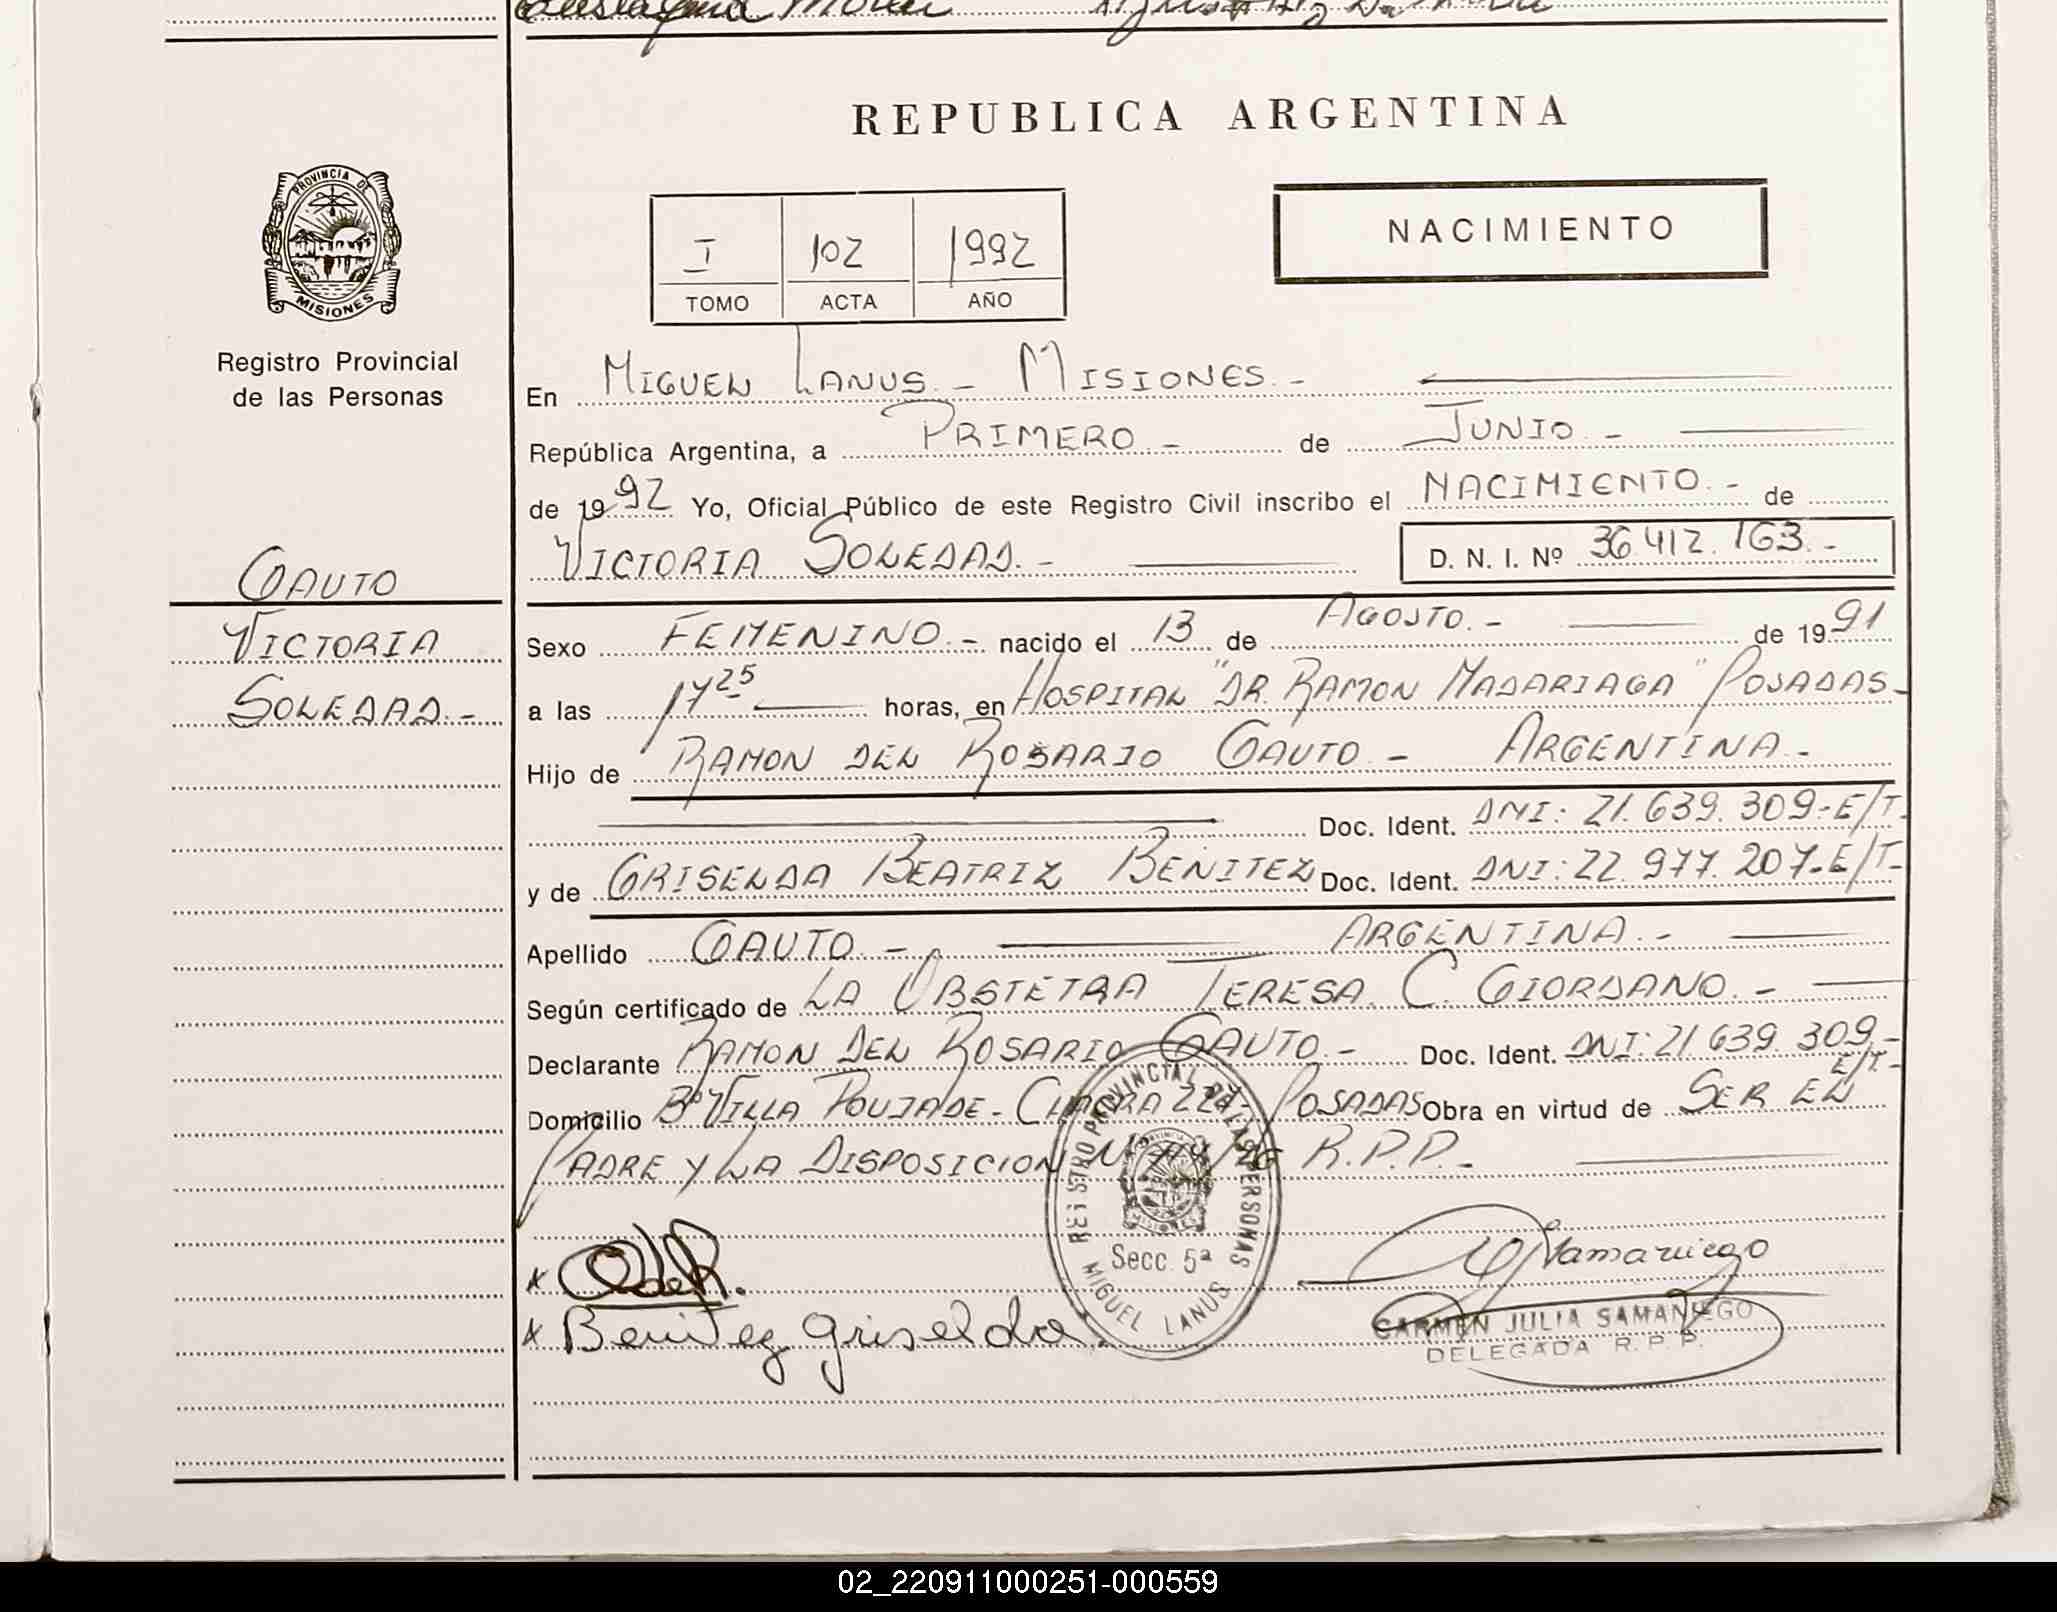 REPUBLICA ARGENTINA
PROVINCIA DE
MISIONES
Registro Provincial
de las Personas
I 102 1992
TOMO ACTA AÑO
NACIMIENTO
En MIGUEL LANUS.- MISIONES.-
República Argentina, a PRIMERO.- de JUNIO.-
de 1992 Yo, Oficial Público de este Registro Civil inscribo el NACIMIENTO.- de
VICTORIA SOLEDAD.- D. N. I. Nº 36.412.163.-
GAUTO
VICTORIA
SOLEDAD.-
Sexo FEMENINO.- nacido el 13 de AGOSTO.- de 1991
a las 17 25 horas, en HOSPITAL "DR. RAMON MADARIAGA" POSADAS-
Hijo de RAMON DEL ROSARIO GAUTO.- ARGENTINA.-
Doc. Ident. DNI: 21.639.309-E/T.
y de GRISELDA BEATRIZ BENITEZ Doc. Ident. DNI: 22.977.207-E/T-
Apellido GAUTO.- ARGENTINA.-
Según certificado de LA OBSTETRA TERESA. C. GIORDANO.-
Declarante RAMON DEL ROSARIO GAUTO.- Doc. Ident. DNI: 21.639.309-
E/T.-
Domicilio Bº VILLA POUJADE- CHACRA POSADAS Obra en virtud de SER EL
PADRE Y LA DISPOSICION Nº R.P.P.-
REGISTRO PROVINCIAL DE LAS PERSONAS
Secc. 5ª
MIGUEL LANUS
x
x Benitez Griselda.
CJSamaniego
CARMEN JULIA SAMANIEGO
DELEGADA R. P. P.
02_220911000251-000559